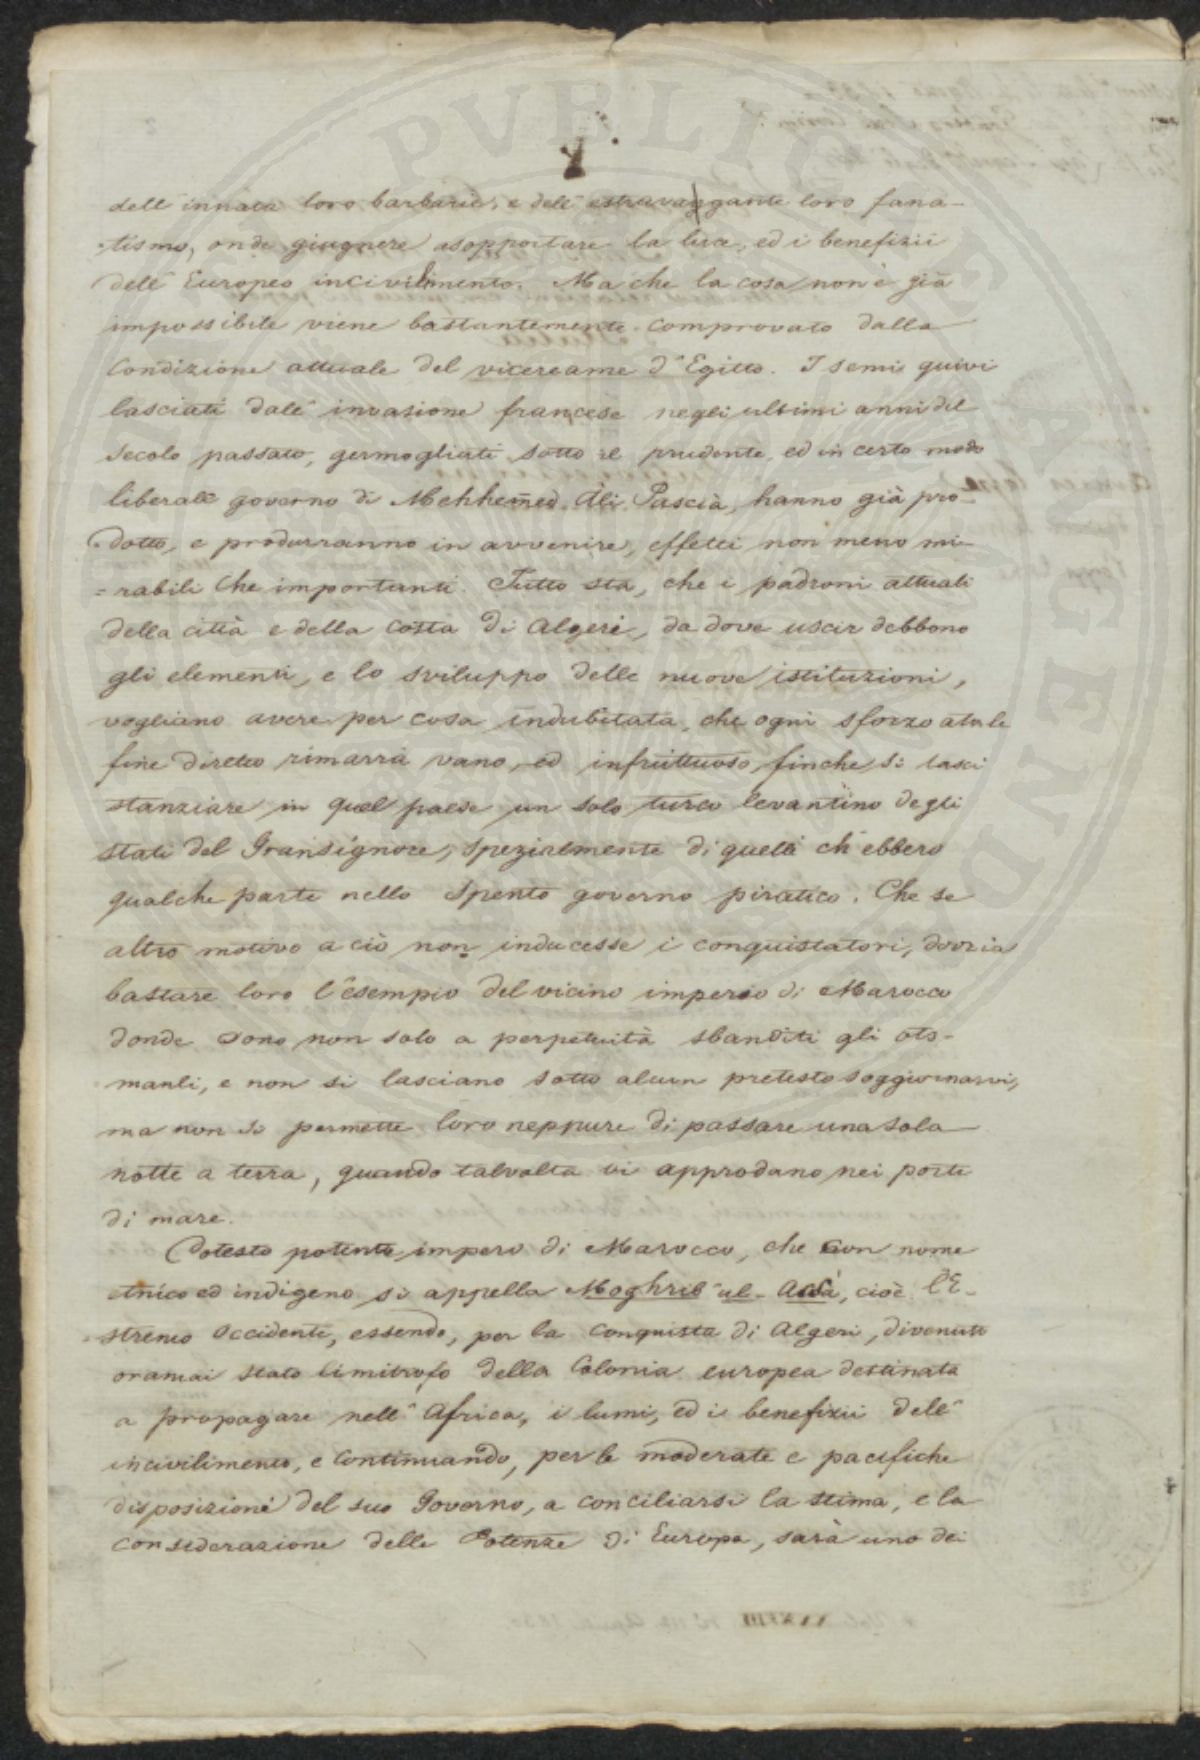 dell' innata loro barbarie, e dell' estravaggante loro fana-
tismo, onde giugnere a sopportare la luce, ed i benefizii
dell' Europeo incivilimento. Ma che la cosa non è già
impossibile viene bastantemente comprovato dalla
condizione attuale del vicereame d' Egitto. I semi quivi
lasciati dall' invasione francese negli ultimi anni del
secolo passato, germogliati sotto il prudente, ed in certo modo
liberale governo di Mehhemed Ali Pascià, hanno già pro-
dotto, e produrranno in avvenire, effetti non meno mi-
=rabili che importanti. Tutto sta, che i padroni attuali
della città e della costa di Algeri, da dove uscir debbono
gli elementi, e lo sviluppo delle nuove istituzioni,
vogliano avere per cosa indubitata, che ogni sforzo a tale
fine diretto rimarrà vano, ed infruttuoso, finche si lasci
stanziare in quel paese un solo turco levantino degli
stati del Gransignore, spezialmente di quelli ch' ebbero
qualche parte nello spento governo piratico. Che se
altro motivo a ciò non inducesse i conquistatori, dovria
bastare loro l' esempio del vicino imperio di Marocco
donde sono non solo a perpetuità sbanditi gli oto-
manli, e non si lasciano sotto alcun pretesto soggiornarvi,
ma non si permette loro neppure di passare una sola
notte a terra, quando talvolta vi approdano nei porti
di mare.
Cotesto potente impero di Marocco, che con nome
etnico ed indigeno si appella Moghrib-ul-Acsà, cioè l' E-
stremo Occidente, essendo, per la conquista di Algeri, divenuto
oramai stato limitrofo della Colonia europea destinata
a propagare nell' Africa, i lumi, ed i benefizii dell'
incivilimento, e continuando, per le moderate e pacifiche
disposizioni del suo Governo, a conciliarsi la stima, e la
considerazione delle Potenze di Europa, sarà uno dei